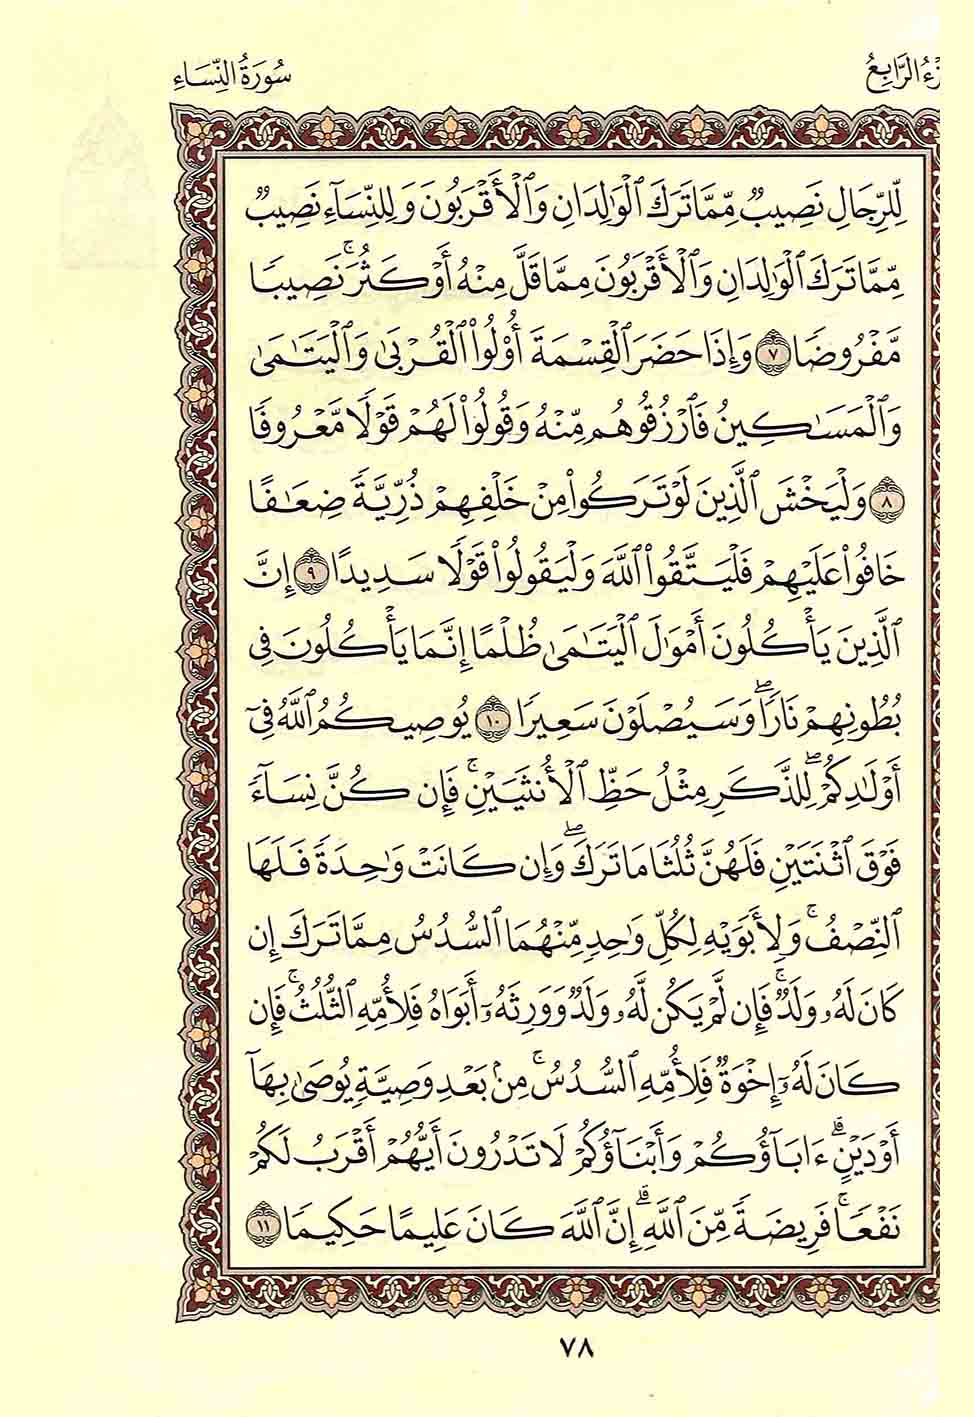 سُورَةُ النِّسَاءِ
الرَّابِعُ
لِّلرِّجَالِ نَصِيبٌ مِّمَّا تَرَكَ ٱلْوَٰلِدَانِ وَٱلْأَقْرَبُونَ وَلِلنِّسَآءِ نَصِيبٌ
مِّمَّا تَرَكَ ٱلْوَٰلِدَانِ وَٱلْأَقْرَبُونَ مِمَّا قَلَّ مِنْهُ أَوْ كَثُرَ ۚ نَصِيبًا
مَّفْرُوضًا ٧ وَإِذَا حَضَرَ ٱلْقِسْمَةَ أُو۟لُوا۟ ٱلْقُرْبَىٰ وَٱلْيَتَـٰمَىٰ
وَٱلْمَسَـٰكِينُ فَٱرْزُقُوهُم مِّنْهُ وَقُولُوا۟ لَهُمْ قَوْلًا مَّعْرُوفًا
٨ وَلْيَخْشَ ٱلَّذِينَ لَوْ تَرَكُوا۟ مِنْ خَلْفِهِمْ ذُرِّيَّةً ضِعَـٰفًا
خَافُوا۟ عَلَيْهِمْ فَلْيَتَّقُوا۟ ٱللَّهَ وَلْيَقُولُوا۟ قَوْلًا سَدِيدًا ٩ إِنَّ
ٱلَّذِينَ يَأْكُلُونَ أَمْوَٰلَ ٱلْيَتَـٰمَىٰ ظُلْمًا إِنَّمَا يَأْكُلُونَ فِى
بُطُونِهِمْ نَارًا ۖ وَسَيَصْلَوْنَ سَعِيرًا ١٠ يُوصِيكُمُ ٱللَّهُ فِىٓ
أَوْلَـٰدِكُمْ ۖ لِلذَّكَرِ مِثْلُ حَظِّ ٱلْأُنثَيَيْنِ ۚ فَإِن كُنَّ نِسَآءً
فَوْقَ ٱثْنَتَيْنِ فَلَهُنَّ ثُلُثَا مَا تَرَكَ ۖ وَإِن كَانَتْ وَٰحِدَةً فَلَهَا
ٱلنِّصْفُ ۚ وَلِأَبَوَيْهِ لِكُلِّ وَٰحِدٍ مِّنْهُمَا ٱلسُّدُسُ مِمَّا تَرَكَ إِن
كَانَ لَهُۥ وَلَدٌ ۚ فَإِن لَّمْ يَكُن لَّهُۥ وَلَدٌ وَوَرِثَهُۥٓ أَبَوَاهُ فَلِأُمِّهِ ٱلثُّلُثُ ۚ فَإِن
كَانَ لَهُۥٓ إِخْوَةٌ فَلِأُمِّهِ ٱلسُّدُسُ ۚ مِنۢ بَعْدِ وَصِيَّةٍ يُوصَىٰ بِهَآ
أَوْ دَيْنٍ ۗ ءَابَآؤُكُمْ وَأَبْنَآؤُكُمْ لَا تَدْرُونَ أَيُّهُمْ أَقْرَبُ لَكُمْ
نَفْعًا ۚ فَرِيضَةً مِّنَ ٱللَّهِ ۗ إِنَّ ٱللَّهَ كَانَ عَلِيمًا حَكِيمًا ١١
٧٨